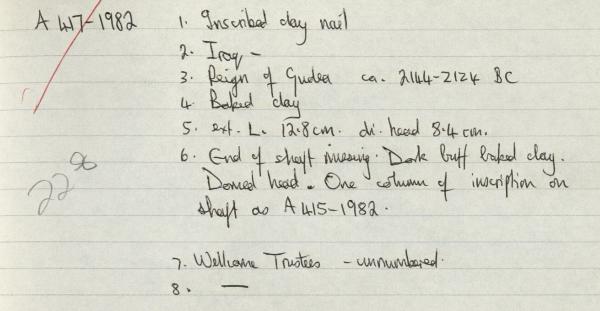 A 417-1982 1. Inscribed clay nail
2. Iraq -
3. Reign of Gudea ca. 2144-2124 BC
4. Baked clay
5. ext. L. 12.8cm. di. head 8.4 cm.
6. End of shaft missing. Dark buff baked clay.
Domed head. One column of inscription on
shaft as A 415-1982.
7. Wellcome Trustees - unnumbered.
8. —